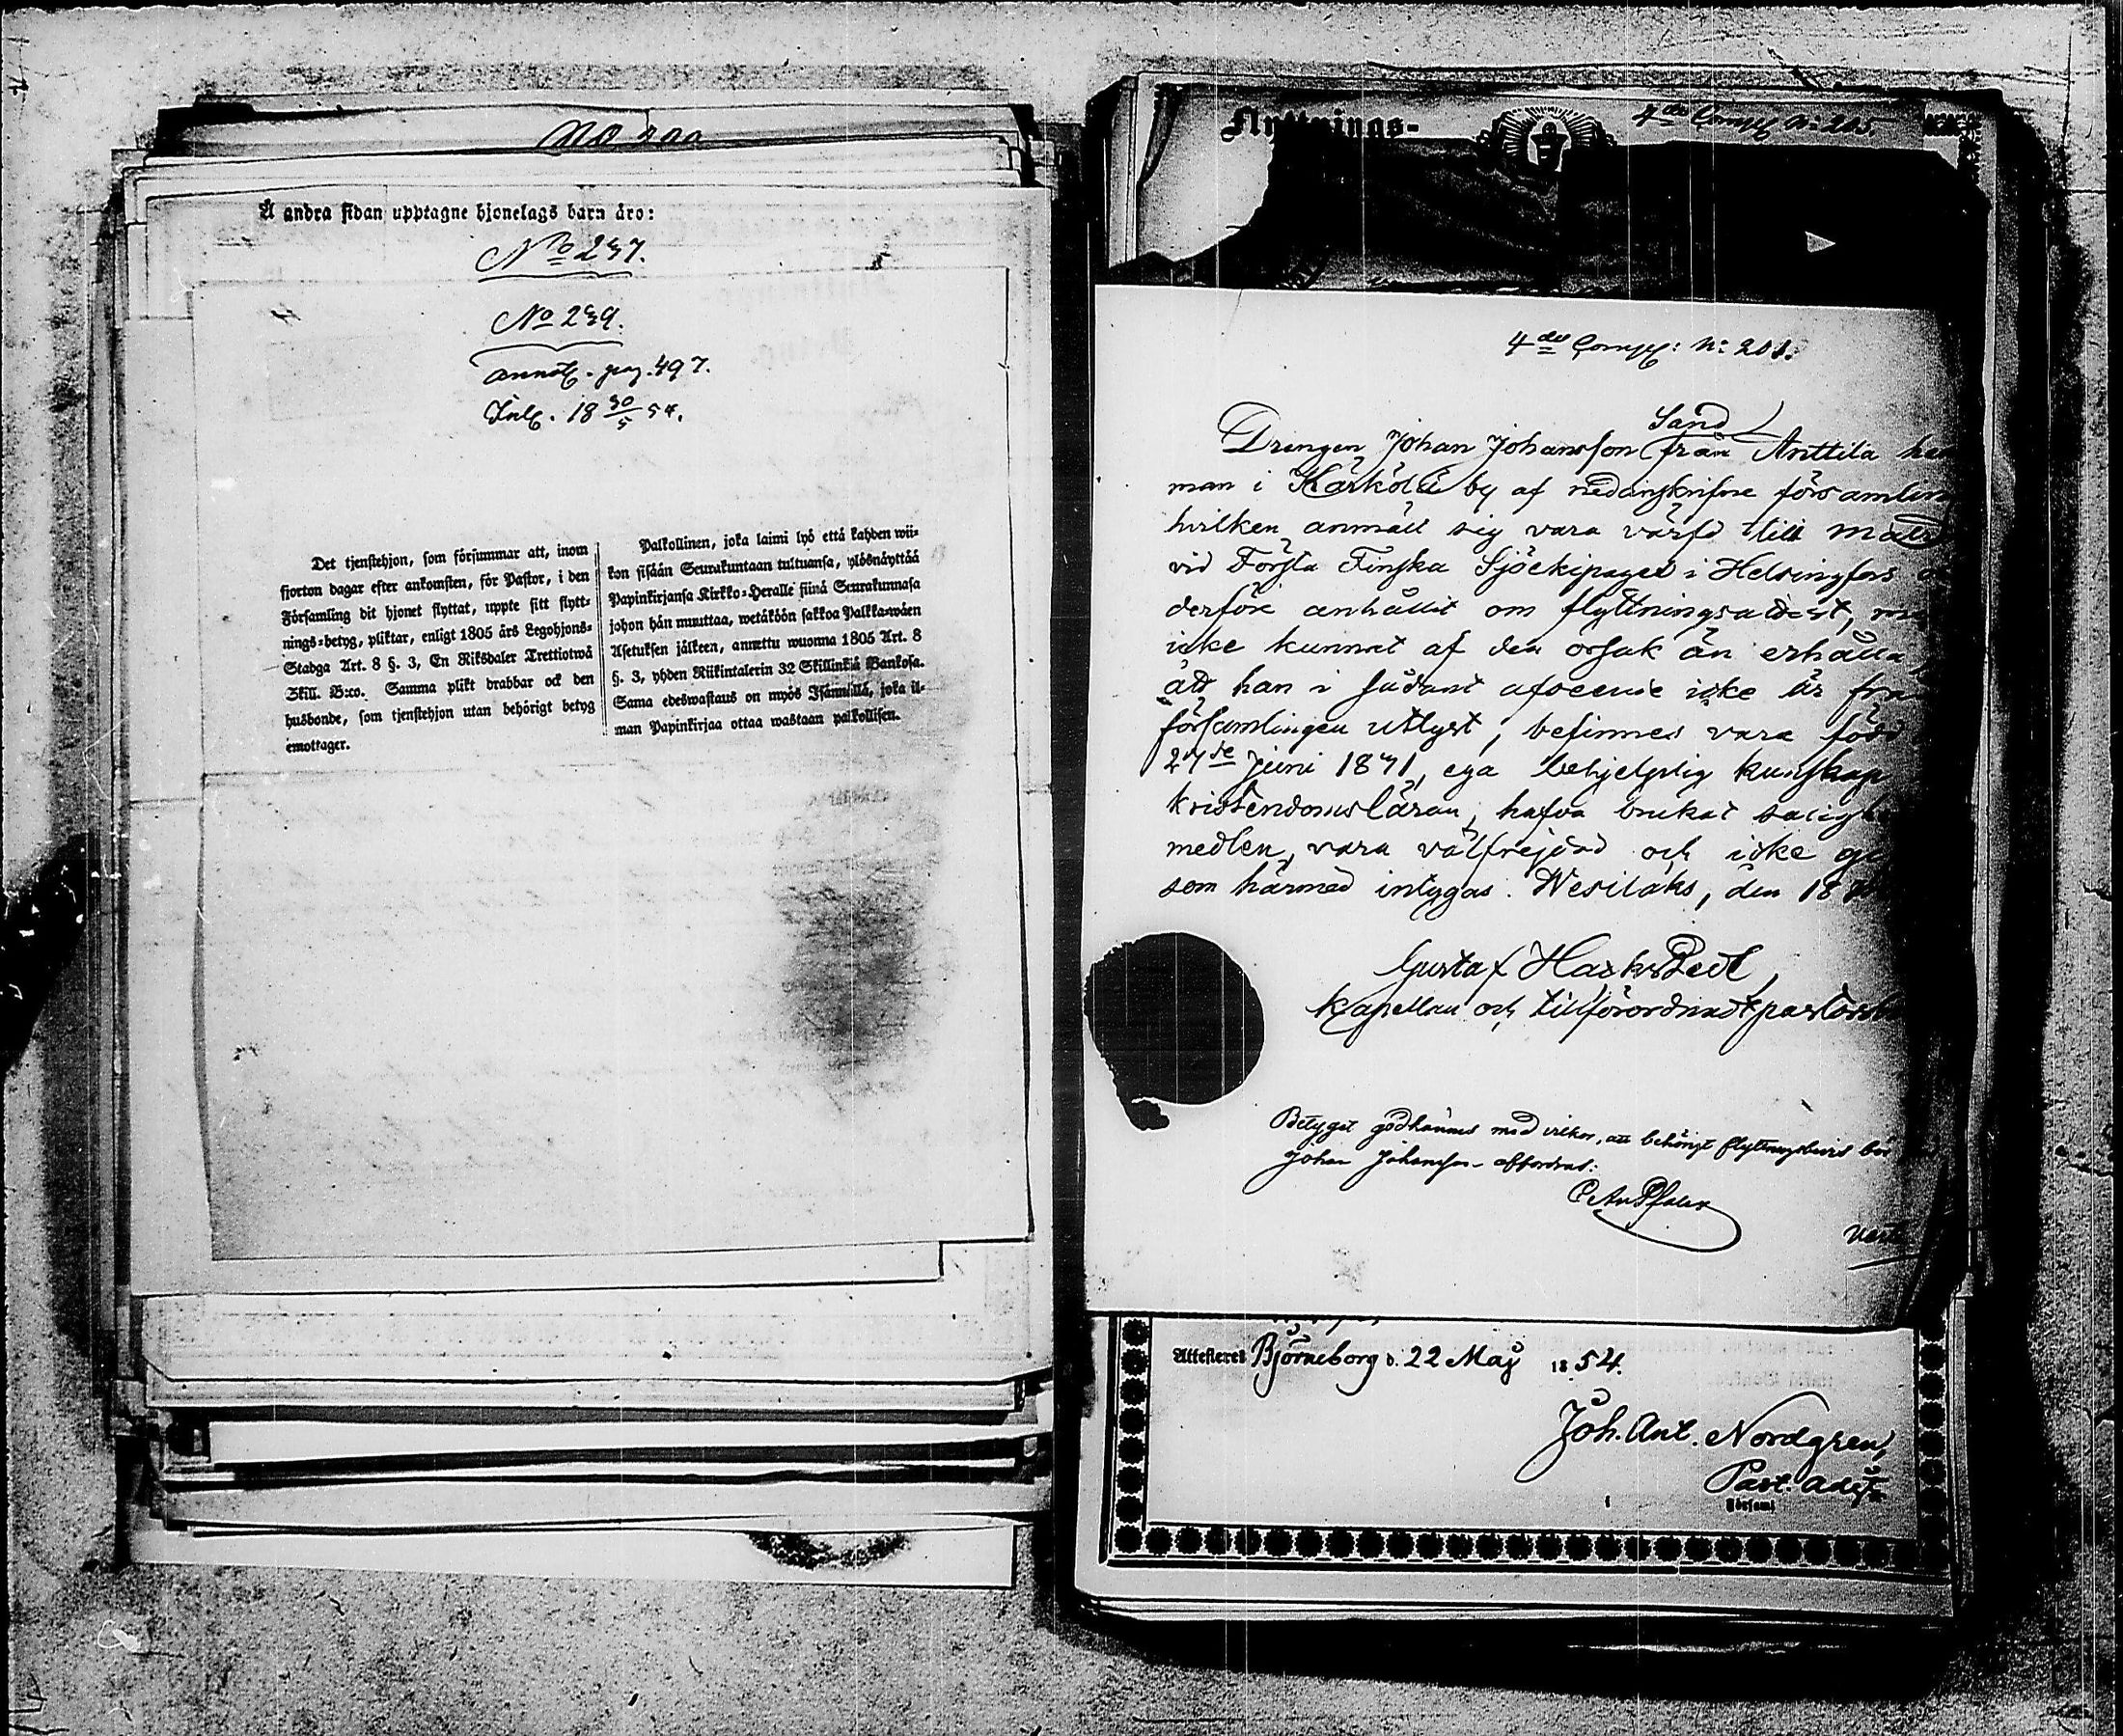 Å andra sidan upptagne hjonelags barn äro:
No 237.
No 239.
annot. pag. 497.
Inl. 18 30/5 54.
Det tjenstehjon, som försummar att, inom
fjorton dagar efter ankomsten, för Pastor, i den
Församling dit hjonet flyttat, uppte sitt flytt-
nings-betyg, pliktar, enligt 1805 års Legohjons-
Stadga Art. 8 §. 3, En Riksdaler Trettiotwå
Skill. B:co. Samma plikt drabbar ock den
husbonde, som tjenstehjon utan behörigt betyg
emottager.
Palkollinen, joka laimi lyö että kahden wii-
kon sisään Seurakuntaan tultuansa, ylösnäyttää
Papinkirjansa Kirkko-Heralle siinä Seurakunnasa
johon hän muuttaa, wetäköön sakkoa Palkka-wäen
Asetuksen jälkeen, annettu wuonna 1805 Art. 8
§. 3, yhden Riikintalerin 32 Skillinkiä Bankosa.
Sama edeswastaus on myös Isännillä, joka il-
man Papinkirjaa ottaa wastaan palkollisen.
Flyttnings-
4de Comp. N: 205
4de Comp: N: 201.
Sand
Drengen Johan Johansson från Anttila
man i Kärkölä by af nedanskrifne församlin
hvilken anmält sig vara värfd till matr
vid Första Finska Sjöekipaget i Helsingfors
derföre anhållit om flyttningsattest,
icke kunnat af den orsak än erhålla
att han i sådant afseende icke är från
församlingen utlyst, befinnes vara född
27de Juni 1831, ega behjelplig kunskap
kristendomsläran, hafva brukat salighe
medlen, vara välfrejdad och icke
som härmed intygas. Wesilaks, den 18
Gustaf
Kapellan och tillförordnadt pastors
Betyget godkännes med vilkor, att behörigt flyttningsbevis
Johan Johansson affordras:
Attesteras Björneborg d. 22 May 1854.
Joh. Ant. Nordgren,
Past. Adj.